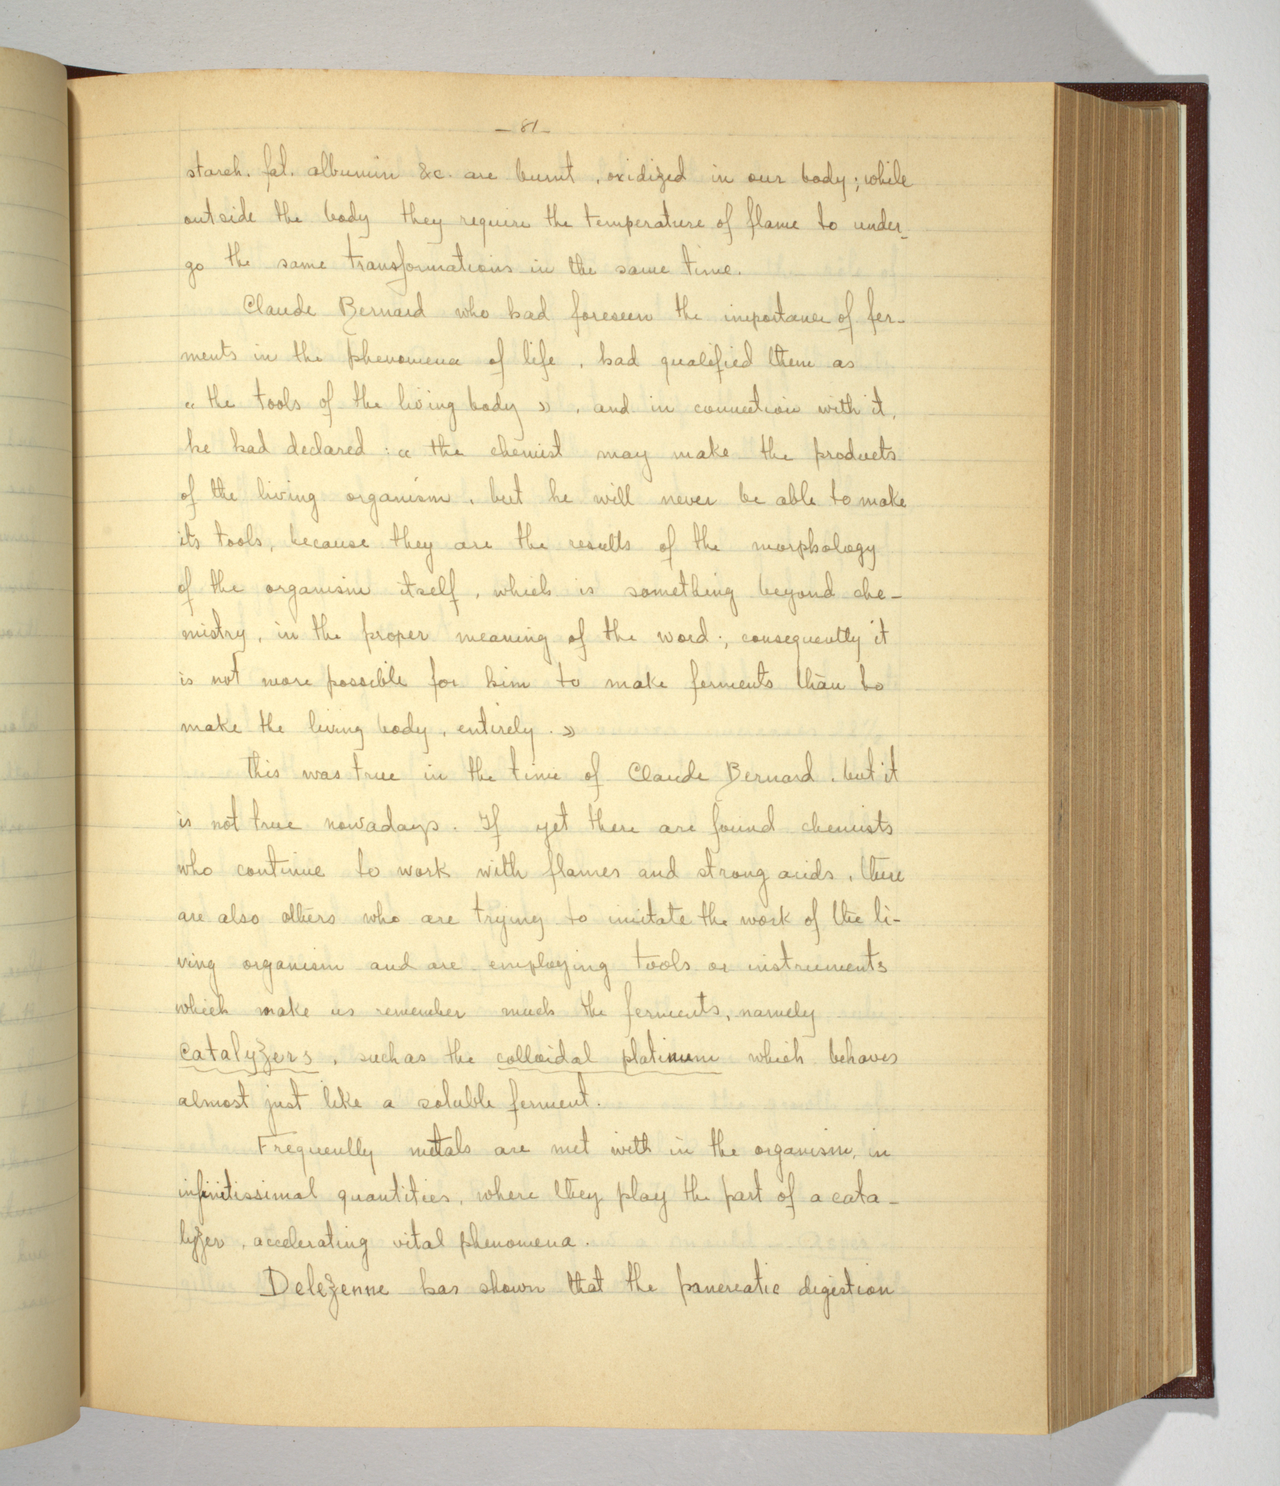 - 81 -
starch, fat, albumin &c. are burnt, oxidized in our body; while
outside the body they require the temperature of flame to under-
go the same transformations in the same time.
Claude Bernard who had foreseen the importance of fer-
ments in the phenomena of life, had qualified them as
« the tools of the living body », and in connection with it,
he had declared : « the chemist may make the products
of the living organism, but he will never be able to make
its tools, because they are the results of the morphology
of the organism itself, which is something beyond che-
mistry, in the proper meaning of the word; consequently it
is not more possible for him to make ferments than to
make the living body, entirely. »
This was true in the time of Claude Bernard, but it
is not true nowadays. If yet there are found chemists
who continue to work with flames and strong acids, there
are also others who are trying to imitate the work of the li-
ving organism and are employing tools or instruments
which make us remember much the ferments, namely
catalyzers, such as the colloidal platinum which behaves
almost just like a soluble ferment.
Frequently metals are met with in the organism, in
infinitissimal quantities, where they play the part of a cata-
lyzer, accelerating vital phenomena.
Delezenne has shown that the pancreatic digestion